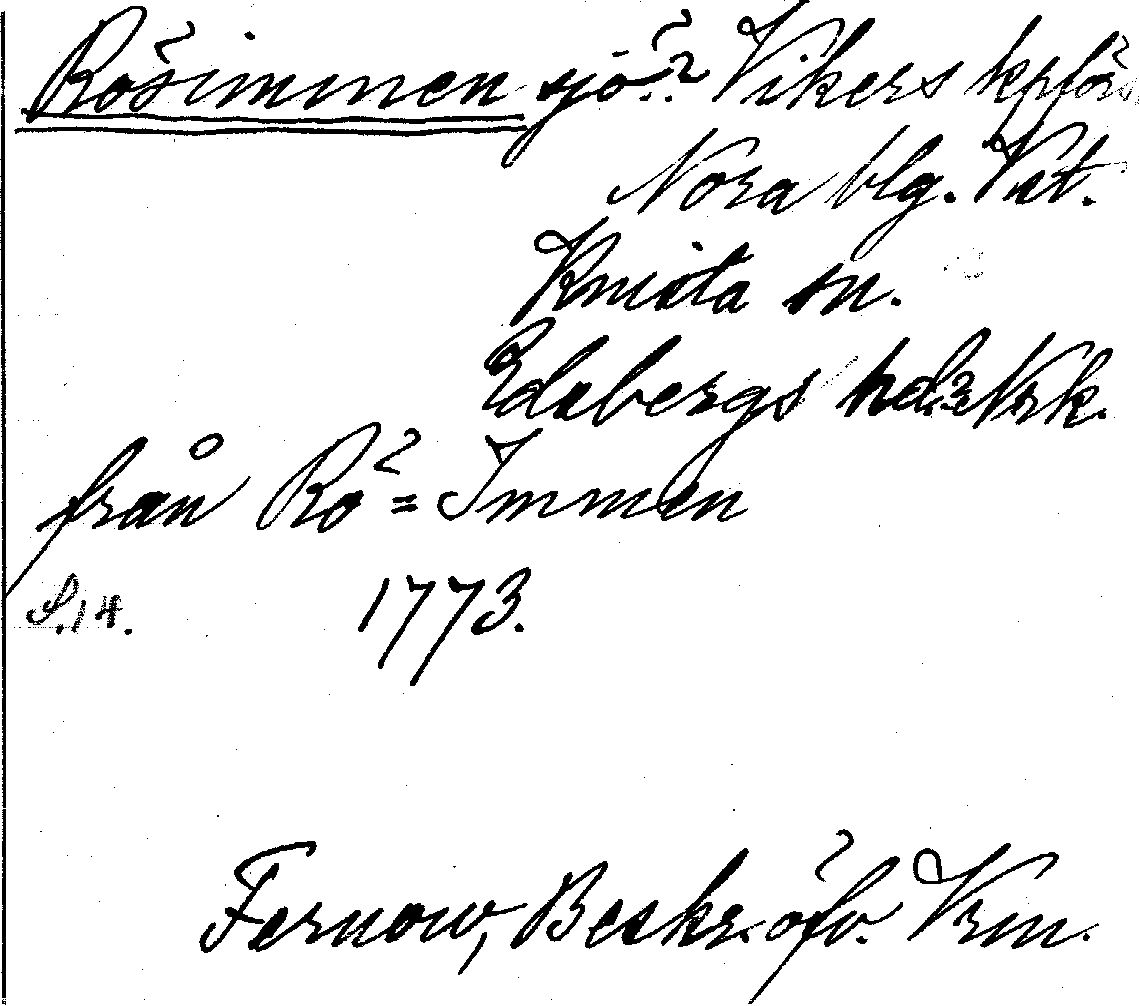 Rösimmen sjö? Vikers kpförs
Nora blg. Vst.
Knista sn.
Edsbergs hd. Nrk.
från Rö=Immen
S. 14. 1773.
Fernow, Beskr. öfv. Vrm.